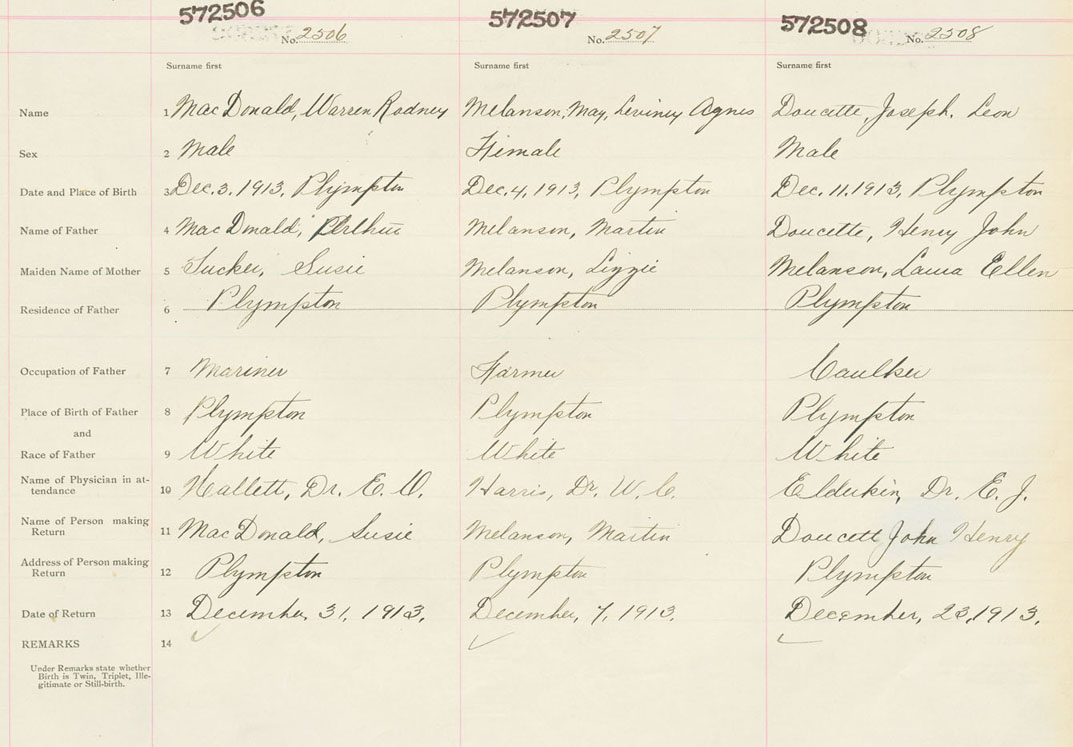 572506 572507 572508
No. 2506 No. 2507 No. 2508
Surname first Surname first Surname first
Name 1 MacDonald, Warren Rodney Melanson, May, Leviney Agnes Doucette, Joseph. Leon
Sex 2 Male Female Male
Date and Place of Birth 3 Dec. 3. 1913, Plympton Dec. 4, 1913, Plympton Dec. 11. 1913, Plympton
Name of Father 4 MacDonald, Arthur Melanson, Martin Doucette, Henry John
Maiden Name of Mother 5 Tucker, Susie Melanson, Lizzie Melanson, Laura Ellen
Residence of Father 6 Plympton Plympton Plympton
Occupation of Father 7 Mariner Farmer Caulker
Place of Birth of Father 8 Plympton Plympton Plympton
and
Race of Father 9 White White White
Name of Physician in at-
tendance 10 Hallett, Dr. E. O. Harris, Dr. W. C. Elderkin, Dr. E. J.
Name of Person making
Return 11 MacDonald, Susie Melanson, Martin Doucett John Henry
Address of Person making
Return 12 Plympton Plympton Plympton
Date of Return 13 December, 31, 1913. December, 7, 1913. December, 23, 1913.
REMARKS 14
Under Remarks state whether
Birth is Twin, Triplet, Ille-
gitimate or Still-birth.